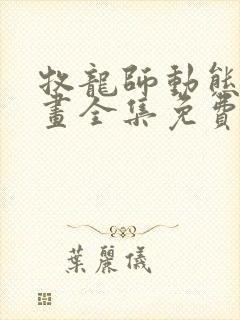 牧龍師動態
畫全集免費
葉麗儀